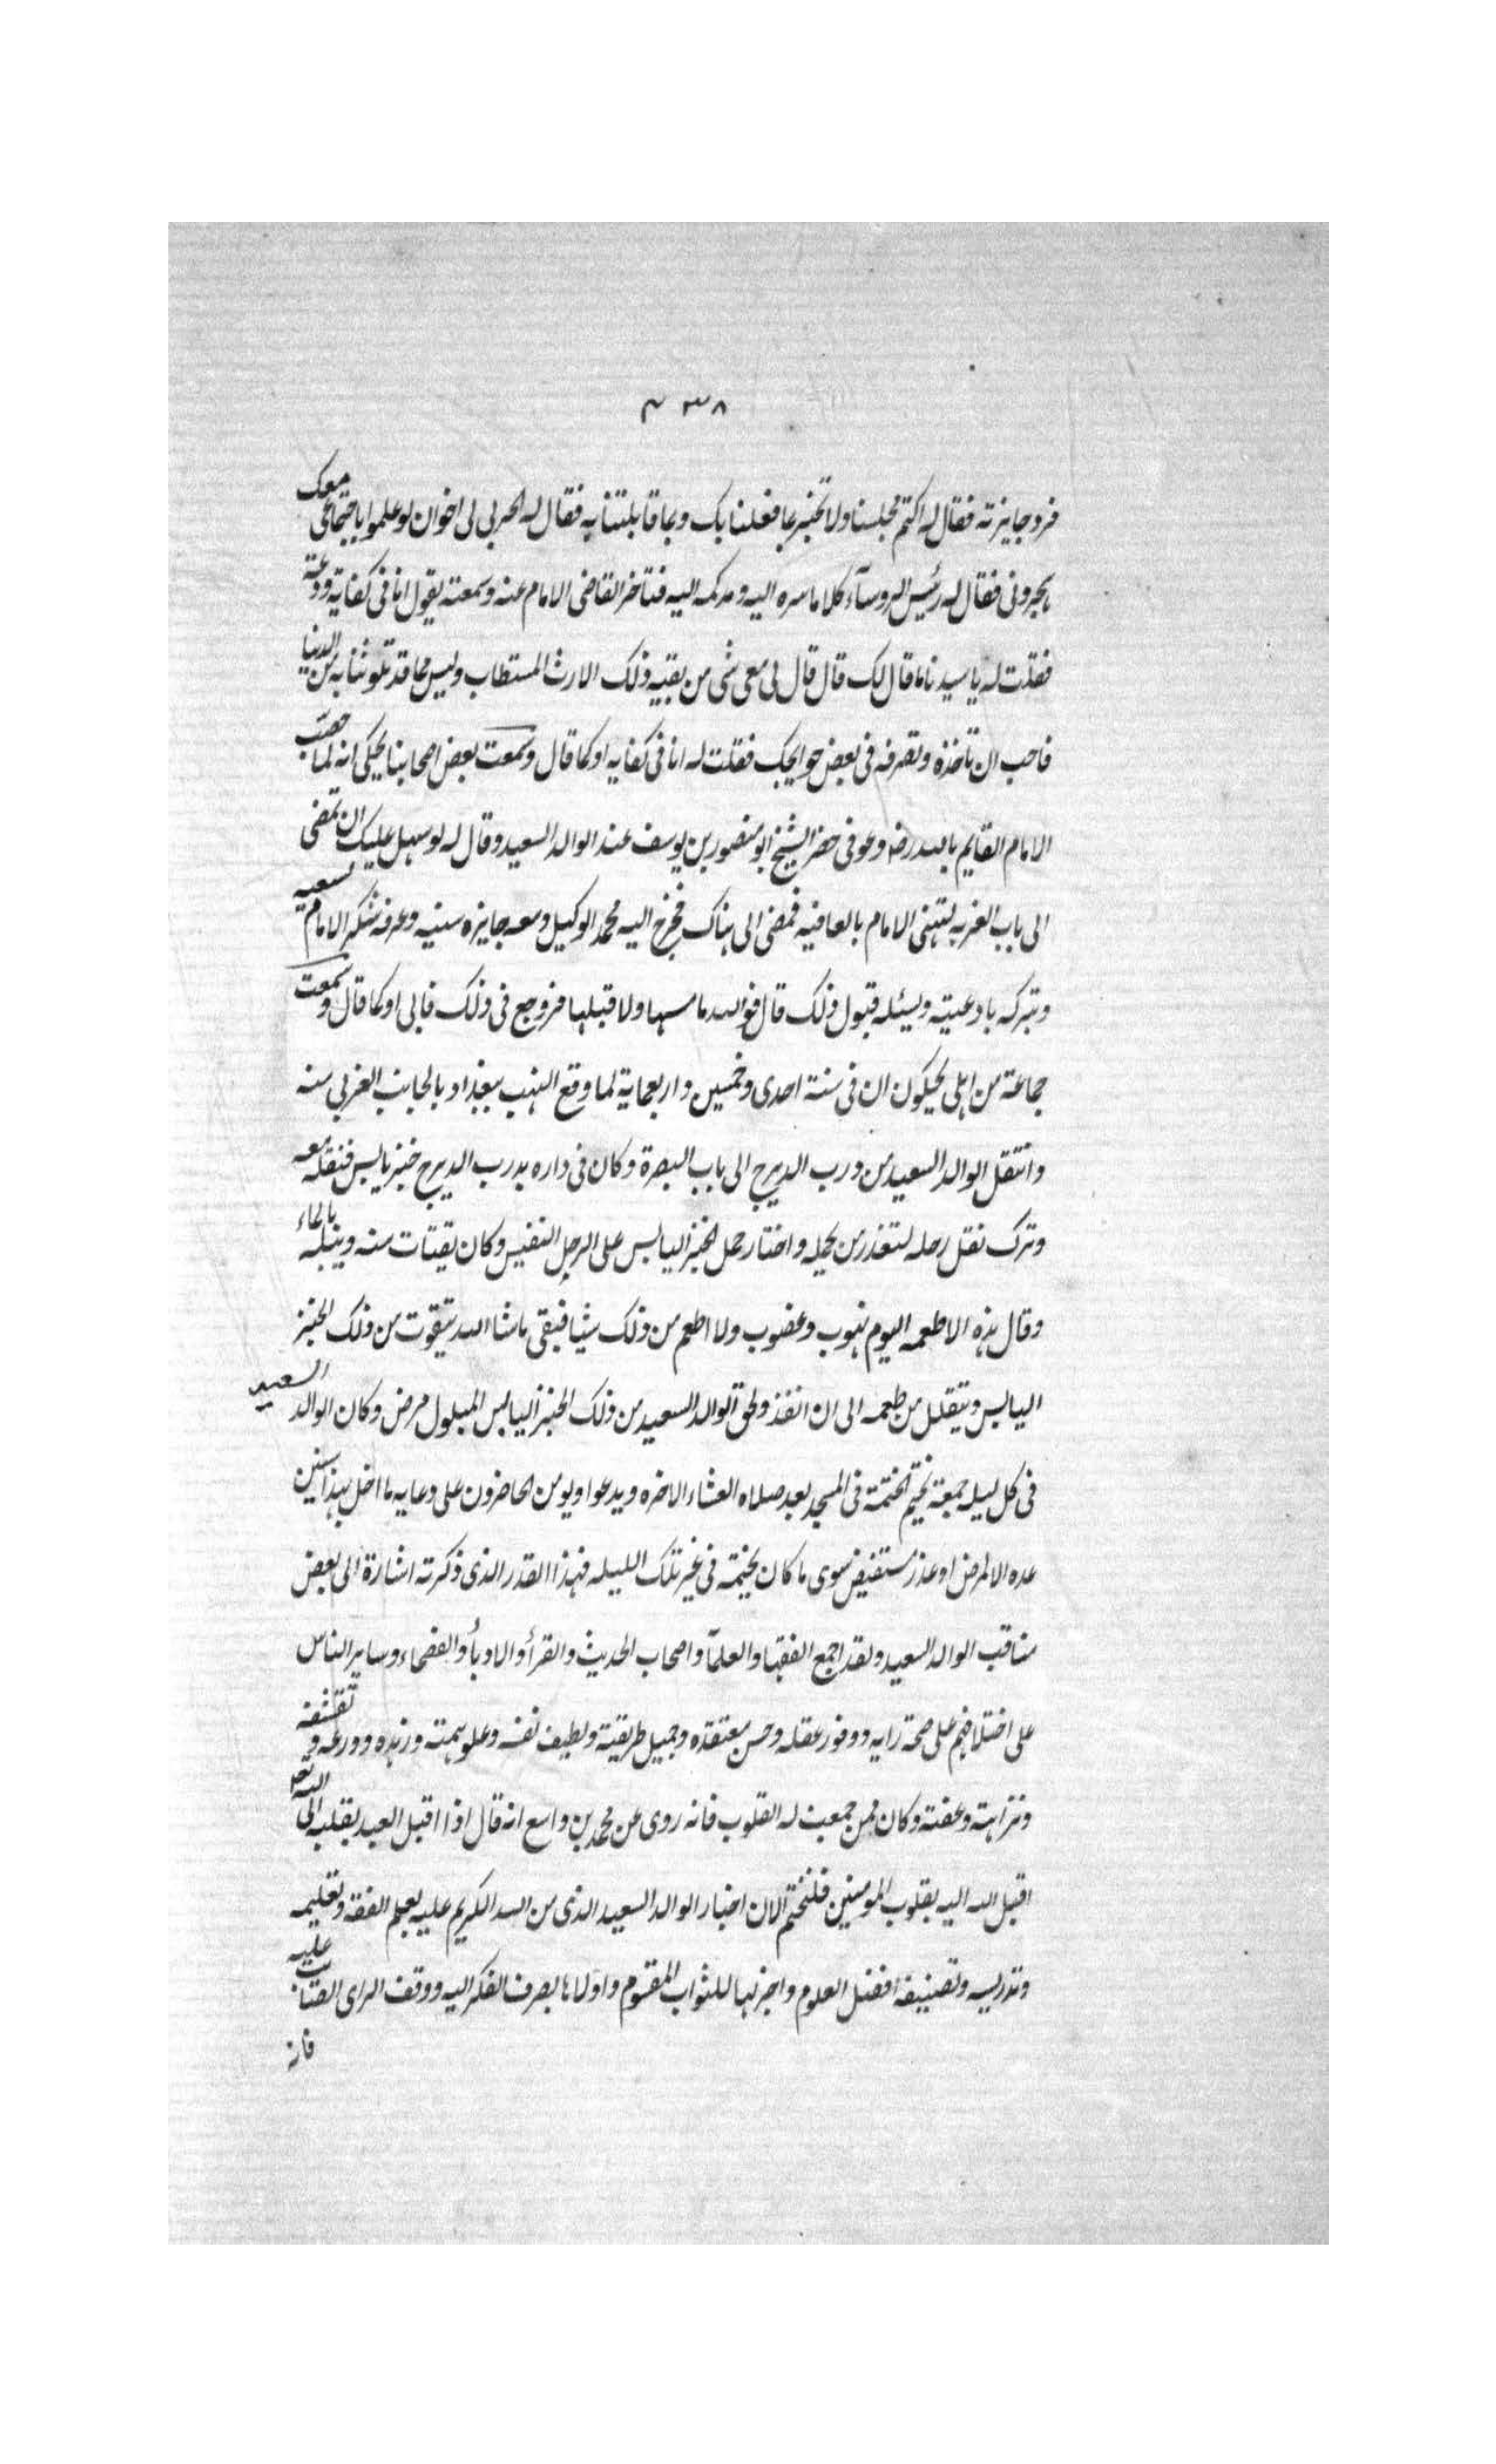 ٣٣٨
فرد جايزته فقال له اكتم مجلسنا ولا تخبر بما فعلنا بك وبما قابلتنا به فقال له الحربى لى اخوان لو علموا باجتماعى معك
هجرونى فقال له رئيس الروسآء كلاما اسره اليه ومد كمه اليه فتاخر القاضى الامام عنه وسمعته يقول انا فى كفاية ودعة
فقلت له يا سيدنا ما قال لك قال قال لى معى شى من بقيه ذلك الارث المستطاب وليس مما قد تلوثنا به من الدنيا
فاحب ان تاخذه وتصرفه فى بعض حوايجك فقلت له انا فى كفايه او كما قال وسمعت بعض اصحابنا يحكى انه لما
الامام القايم بالله رضه وعوفى حضر الشيخ ابو منصور بن يوسف عند الوالد السعيد وقال له لو سهل عليك ان تمضى
الى باب الغربه لتهنى الامام بالعافيه فمضى الى هناك فخرج اليه محمد الوكيل ومعه جايزه سنيه وعرفه شكر الامام لسعيه
وتبركه بادعيته ويسئله قبول ذلك قال فوالله ما مسها ولا قبلها فروجع فى ذلك فابى او كما قال وسمعت
جماعة من اهلى يحكون ان فى سنة احدى وخمسين واربعماية لما وقع النهب ببغداد بالجانب الغربى منه
وانتقل الوالد السعيد من درب الديزج الى باب البصرة وكان فى داره بدرب الديزج خبز يابس فنقله معه
وترك نقل رحله لتعذر من يحمله واختار حمل الخبز اليابس على الرحل النفيس وكان يقتات منه ويبله بالماء
وقال هذه الاطعمه اليوم نهوب وغصوب ولا اطعم من ذلك شيا فبقى ما شا الله يتقوت من ذلك الخبز
اليابس ويتقلل من طعمه الى ان انفذ ولحق الوالد السعيد من ذلك الخبز اليابس المبلول مرض وكان الوالد السعيد
فى كل ليله جمعة يختم الختمة فى المسجد بعد صلاه العشاء الاخره ويدعوا ويومن الحاضرون على دعايه ما اخل بهذا سنين
عده الا لمرض او عذر مستفيض سوى ما كان يختمه فى غير تلك الليله فهذا القدر الذى ذكرته اشارة الى بعض
مناقب الوالد السعيد ولقد اجمع الفقها والعلمآ واصحاب الحديث والقرأ والادبأ والفصحاء وساير الناس
على اختلافهم على صحة رايه ووفور عقله وحسن معتقده وجميل طريقته ولطيف نفسه وعلو همته وزهده وورعه وتقشفه
ونزاهته وعفته وكان ممن جمعت له القلوب فانه روى عن محمد بن واسع انه قال اذا اقبل العبد بقلبه الى الله تعـ
اقبل الله اليه بقلوب المومنين فلنختم الان اخبار الوالد السعيد الذى من الله الكريم عليه بعلم الفقه وتعليمه
وتدريسه وتصنيفه افضل العلوم واجزلها للثواب المقسوم واولاها بصرف الفكر اليه ووقف الراى الصائب عليه
فانه